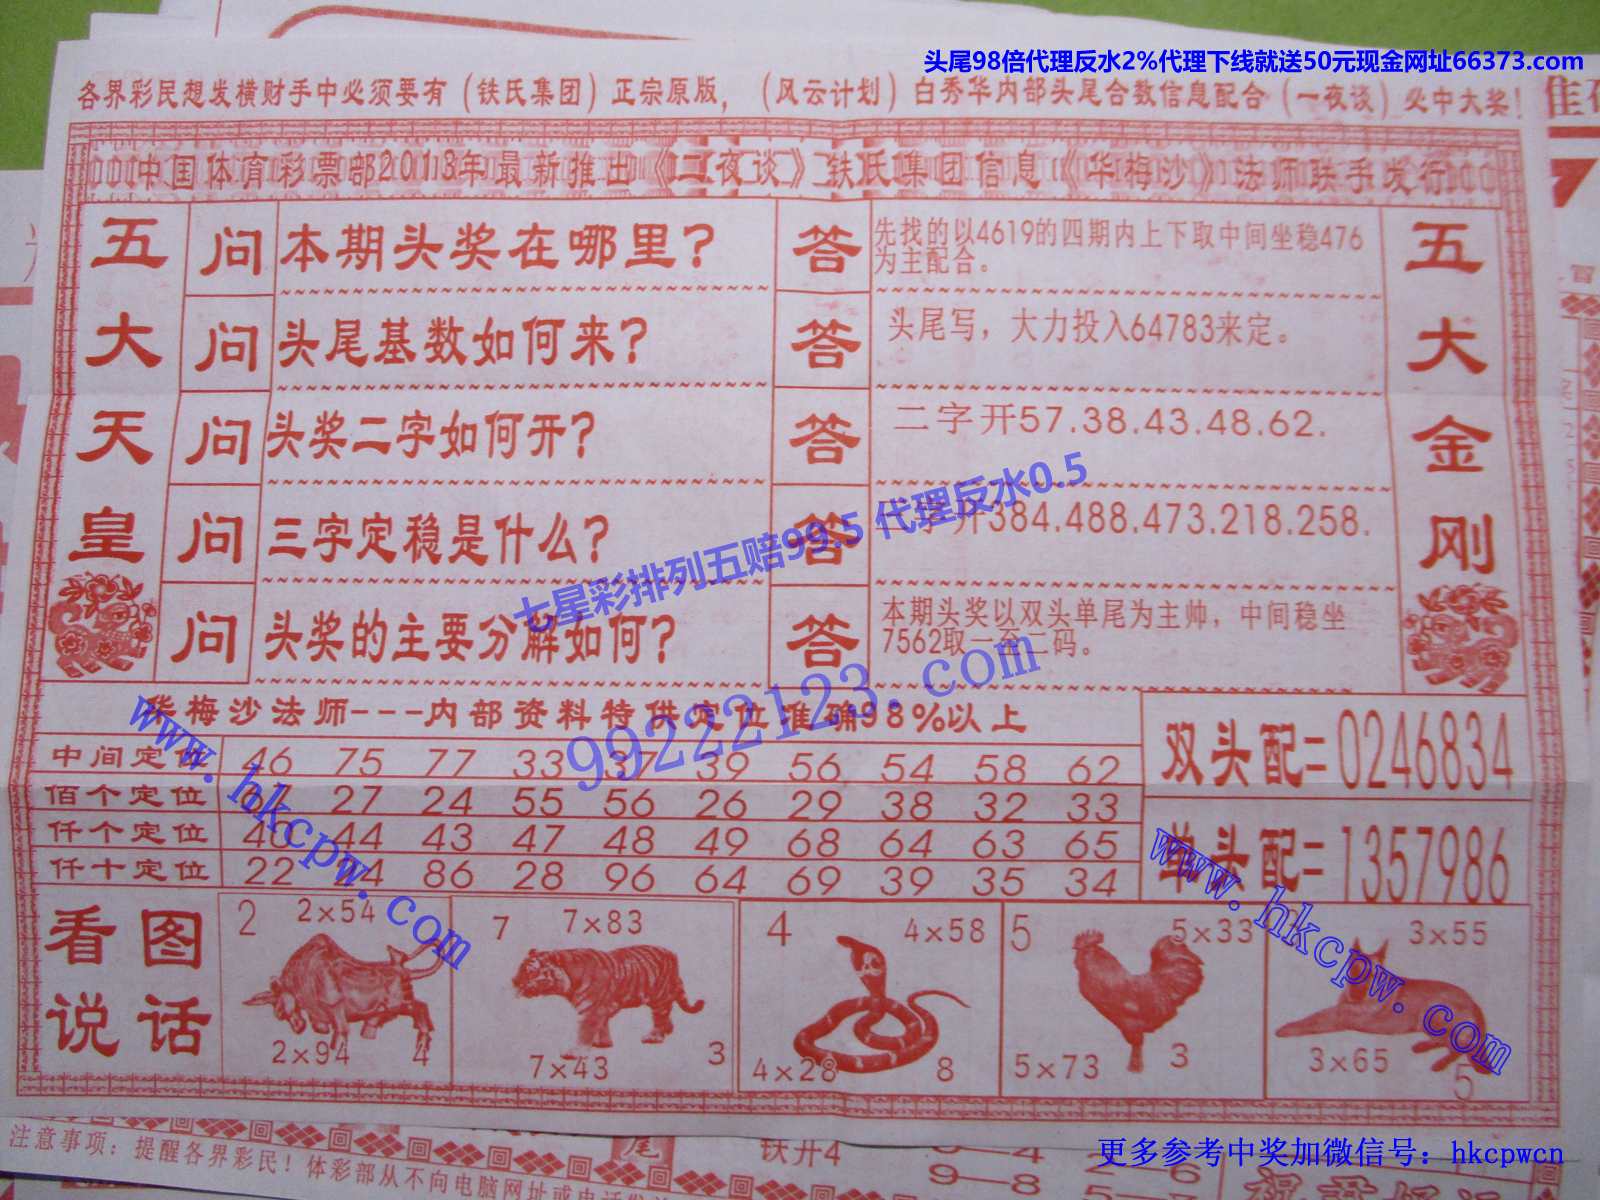 头尾98倍代理反水2%代理下线就送50元现金网址66373.com
各界彩民想发横财手中必须要有（铁氏集团）正宗原版，（风云计划）白秀华内部头尾合数信息配合（一夜谈）必中大奖！
中国体育彩票部2013年最新推出《二夜谈》铁氏集团信息《华梅沙》法师联手发行
五大天皇
问 本期头奖在哪里？ 答 先找的以4619的四期内上下取中间坐稳476
为主配合。
问 头尾基数如何来？ 答 头尾写，大力投入64783来定。
问 头奖二字如何开？ 答 二字开57.38.43.48.62.
问 三字定稳是什么？ 答 字开384.488.473.218.258.
问 头奖的主要分解如何？ 答 本期头奖以双头单尾为主帅，中间稳坐
7562取一至二码。
五大金刚
七星彩排列五赔99.5 代理反水0.5
99222123.com
www.hkcpw.com
www.hkcpw.com
华梅沙法师---内部资料特供定位准确98%以上
中间定位 46 75 77 33 37 39 56 54 58 62
佰个定位 27 24 55 56 26 29 38 32 33
仟个定位 46 44 43 47 48 49 68 64 63 65
仟十定位 22 24 86 28 96 64 69 39 35 34
双头配=0246834
单头配=1357986
看图
说话
2 2×54
2×94 4
7 7×83
7×43 3
4 4×58
4×28 8
5 5×33
5×73 3
3×55
3×65 5
注意事项：提醒各界彩民！体彩部从不向电脑网址或
尾
铁开4
9—8
更多参考中奖加微信号：hkcpwcn